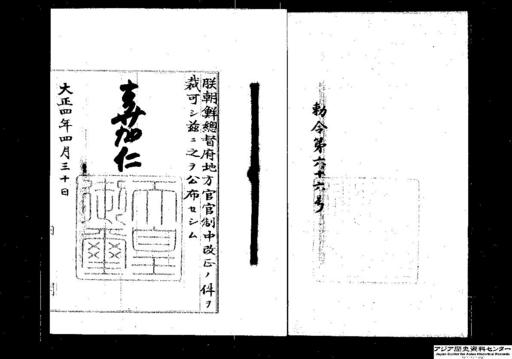 勅令第六十六号
朕朝鮮總督府地方官官制中改正ノ件ヲ
裁可シ茲ニ之ヲ公布セシム
嘉仁
天皇御璽
大正四年四月三十日
アジア歴史資料センター
Japan Center for Asian Historical Records